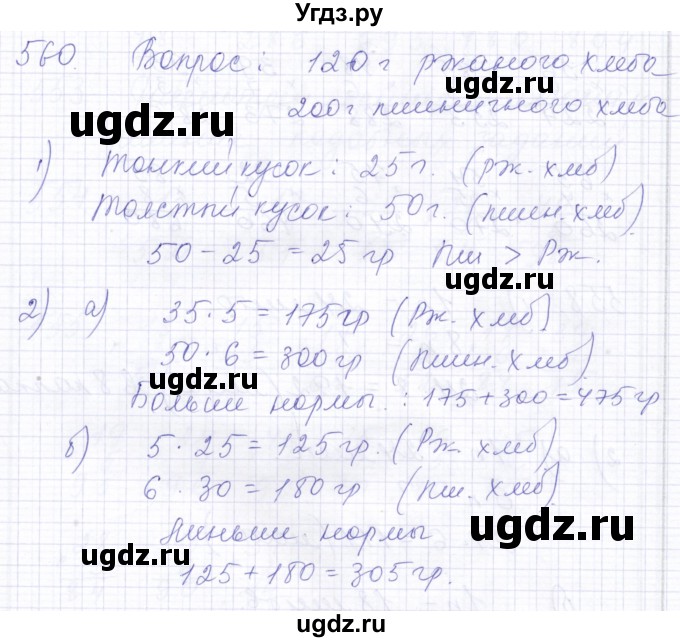 Угдз.ру
560. Вопрос: 120 г ржаного хлеба
200 г пшеничного хлеба
ugdz.ru
1) Тонкий кусок: 25 г. (рж. хлеб)
Толстый кусок: 50 г. (пшен. хлеб)
ugdz.ru
50 - 25 = 25 гр пш > Рж.
2) а) 35 · 5 = 175 гр (Рж. хлеб)
50 · 6 = 300 гр (пшен. хлеб)
ugdz.ru ugdz.ru
Больше нормы: 175 + 300 = 475 гр
б) 5 · 25 = 125 гр. (Рж. хлеб)
6 · 30 = 180 гр (пш. хлеб)
ugdz.ru
Миньше нормы
ugdz.ru
125 + 180 = 305 гр.
ugdz.ru